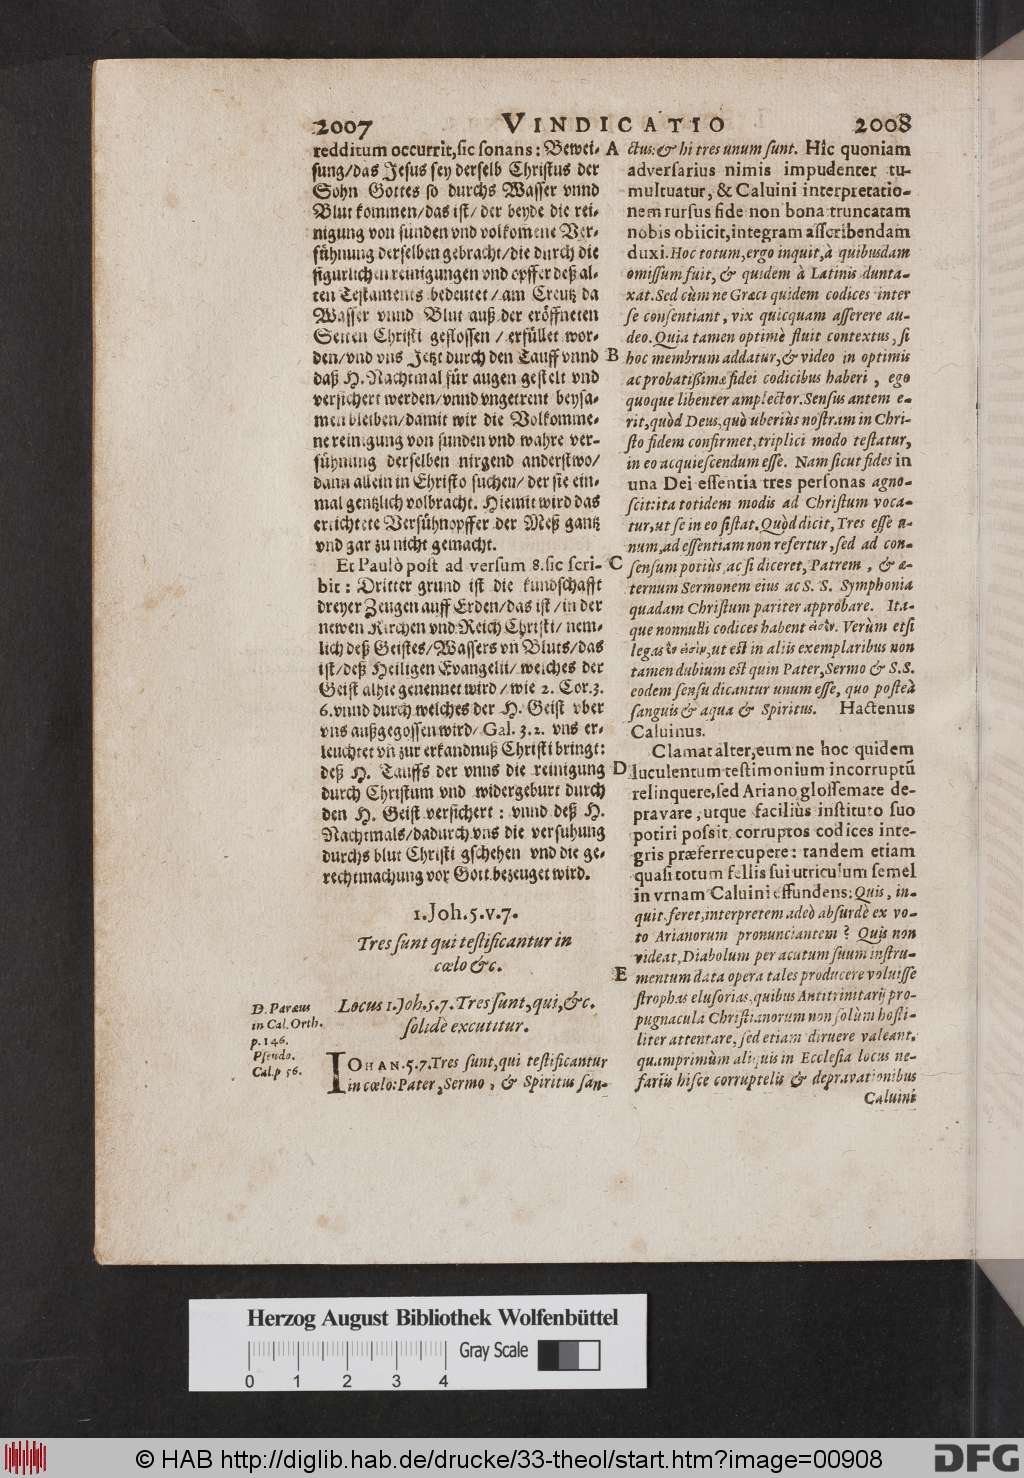 2007 VINDICATIO 2008
redditum occurrit, sic sonans: Bewei-
sung/das Jesus sey derselb Christus der
Sohn Gottes so durchs Wasser vnnd
Blut kommen/das ist/ der beyde die rei-
nigung von sunden vnd volkomene Ver-
sühnung derselben gebracht/die durch die
figurlichen reinigungen vnd opffer deß al-
ten Testaments bedeutet/am Creutz da
Wasser vnnd Blut auß der eröffneten
Seiten Christi geflossen / erfüllet wor-
den/vnd vns Jetzt durch den Tauff vnnd
daß H. Nachtmal für augen gestelt vnd
versichert werden/vnnd vngetrent beysa-
men bleiben/damit wir die Volkomme-
ne reinigung von sunden vnd wahre ver-
sühnung derselben nirgend anderstwo/
dann allein in Christo suchen/ der sie ein-
mal gentzlich volbracht. Hiemit wird das
ertichtete Versühnopffer der Meß gantz
vnd gar zu nicht gemacht.
Et Paulò post ad versum 8. sic scri-
bit: Dritter grund ist die kundschafft
dreyer Zeugen auff Erden/das ist/in der
newen Kirchen vnd Reich Christi/ nem-
lich deß Geistes/Wassers vñ Bluts/das
ist/deß Heiligen Evangelii/ welches der
Geist alhie genennet wird/ wie 2. Cor. 3.
6. vnnd durch welches der H. Geist vber
vns außgegossen wird/ Gal. 3. 2. vns er-
leuchtet vñ zur erkandnuß Christi bringt:
deß H. Tauffs der vnns die reinigung
durch Christum vnd widergeburt durch
den H. Geist versichert: vnnd deß H.
Nachtmals/dadurch vns die versuhung
durchs blut Christi gschehen vnd die ge-
rechtmachung vor Gott bezeuget wird.
1. Joh. 5. v. 7.
Tres sunt qui testificantur in
cœlo &c.
D. Paræus
in Cal. Orth.
p. 146.
Pseudo.
Cal. p 56.
Locus 1. Joh. 5. 7. Tres sunt, qui, &c.
solidè excutitur.
IOHAN. 5. 7. Tres sunt, qui testificantur
in cœlo: Pater, Sermo, & Spiritus san-
A ctus: & hi tres unum sunt. Hîc quoniam
adversarius nimis impudenter tu-
multuatur, & Caluini interpretatio-
nem rursus fide non bona truncatam
nobis obiicit, integram asscribendam
duxi. Hoc totum, ergo inquit, à quibusdam
omissum fuit, & quidem à Latinis dunta-
xat. Sed cùm ne Græci quidem codices inter
se consentiant, vix quicquam asserere au-
deo. Quia tamen optimè fluit contextus, si
B hoc membrum addatur, & video in optimis
ac probatißimæ fidei codicibus haberi, ego
quoque libenter amplector. Sensus autem e-
rit, quòd Deus, quò uberiùs nostram in Chri-
sto fidem confirmet, triplici modo testatur,
in eo acquiescendum esse. Nam sicut fides in
una Dei essentia tres personas agno-
scit: ita totidem modis ad Christum voca-
tur, ut se in eo sistat. Quòd dicit, Tres esse u-
num, ad essentiam non refertur, sed ad con-
C sensum potiùs, ac si diceret, Patrem, & æ-
ternum Sermonem eius ac S. S. Symphonia
quadam Christum pariter approbare. Ita-
que nonnulli codices habent Verùm etsi
legas ut est in aliis exemplaribus non
tamen dubium est quin Pater, Sermo & S. S.
eodem sensu dicantur unum esse, quo posteà
sanguis & aqua & Spiritus. Hactenus
Caluinus.
Clamat alter, eum ne hoc quidem
D luculentum testimonium incorruptũ
relinquere, sed Ariano glossemate de-
pravare, utque faciliùs instituto suo
potiri possit corruptos codices inte-
gris præferre cupere: tandem etiam
quasi totum fellis sui utriculum semel
in vrnam Caluini effundens: Quis, in-
quit, feret, interpretem adeò absurdè ex vo-
to Arianorum pronunciantem? Quis non
videat, Diabolum per acutum suum instru-
E mentum data opera tales producere voluisse
strophas elusorias, quibus Antitrinitarij pro-
pugnacula Christianorum non solùm hosti-
liter attentare, sed etiam diruere valeant.
quamprimùm aliquis in Ecclesia locus ne-
fariis hisce corruptelis & depravationibus
Caluini
Herzog August Bibliothek Wolfenbüttel
Gray Scale
0 1 2 3 4
© HAB http://diglib.hab.de/drucke/33-theol/start.htm?image=00908
DFG